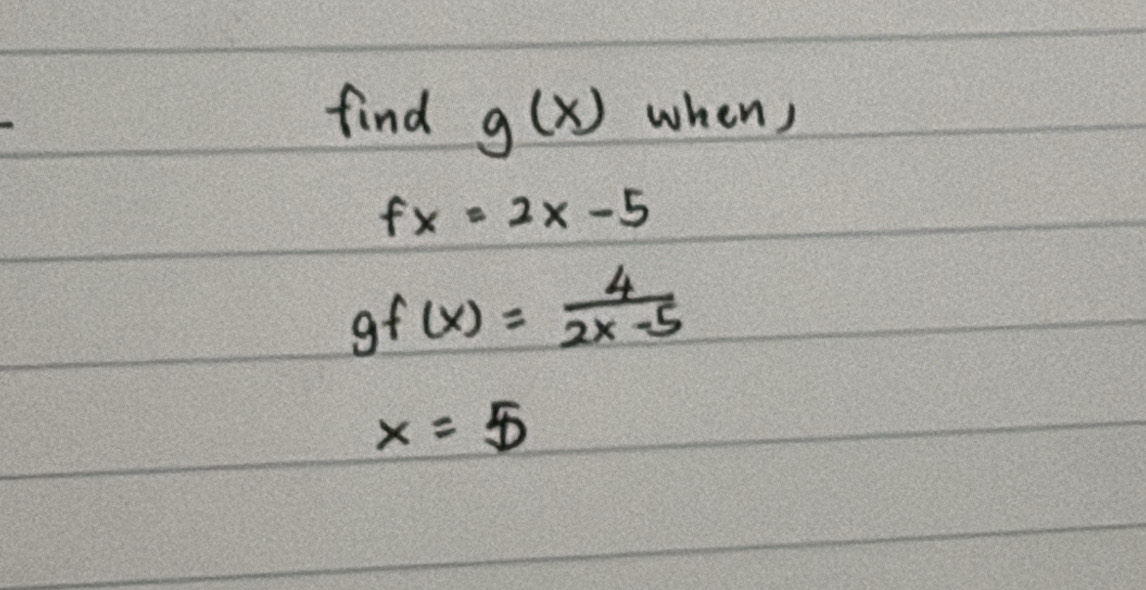 find g(x) when,
fx = 2x - 5
gf(x) = 4/(2x - 5)
x =